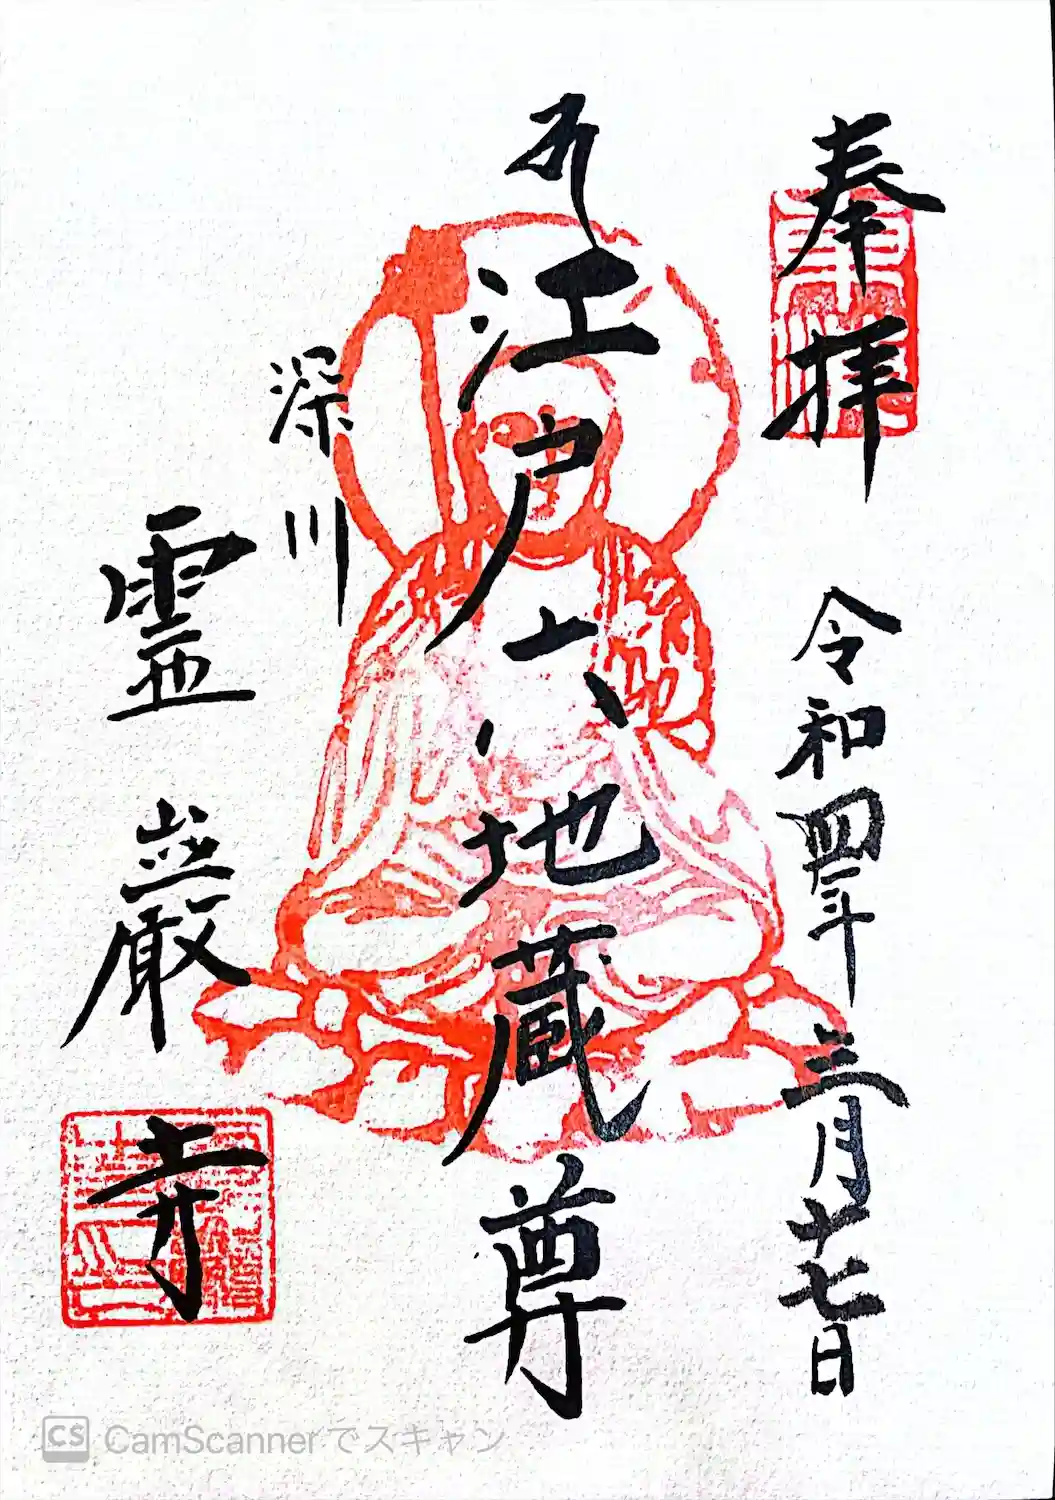 奉拝
令和四年三月十七日
江戸六地蔵尊
深川
霊巌寺
CS CamScannerでスキャン